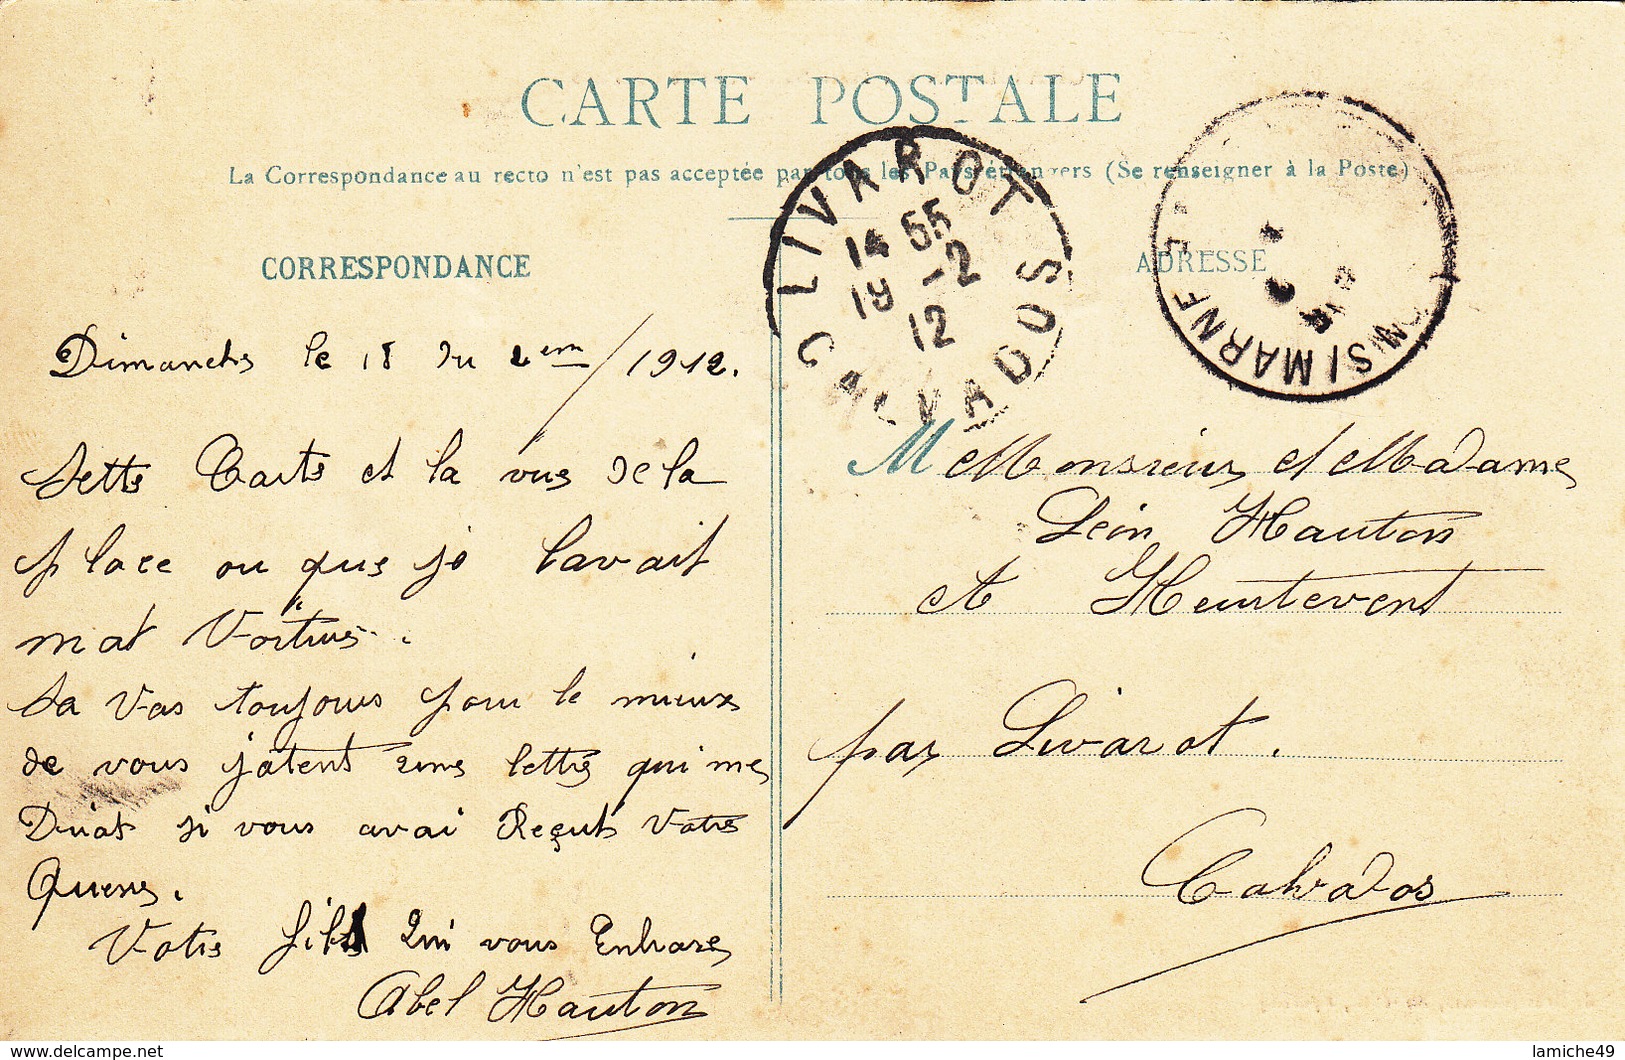 CARTE POSTALE
La Correspondance au recto n'est pas acceptée par tous les Pays étrangers (Se renseigner à la Poste)
CORRESPONDANCE
Dimanche le 18 du 2em/1912.
Sette Carte et la vue de la
place ou que je lavait
mat Voiture.
Sa Vas toujours pour le mieux
de vous j'atent une lettre qui me
Diras si vous avai Reçut Votre
Votre fils Qui vous Enbrase
Abel Hauton
LIVAROT
14 55
19 -2
12
CALVADOS
ADRESSE
MARNE
M Monsieur et Madame
Léon Hauton
A Heurtevent
par Livarot.
Calvados
lamiche49